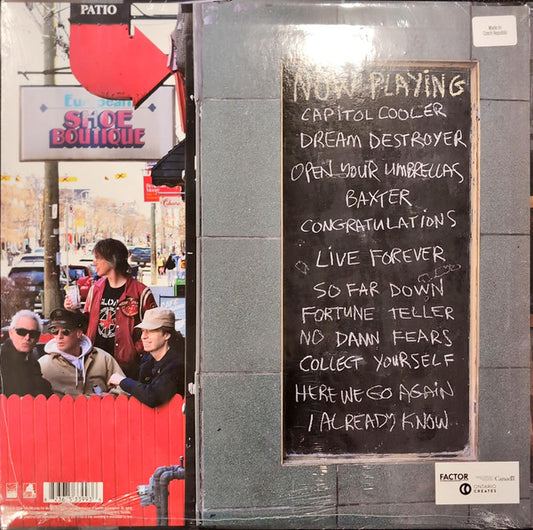 PATIO
European
SHOE
BOUTIQUE
Made in
Czech Republic
NOW PLAYING
CAPITOL COOLER
DREAM DESTROYER
OPEN YOUR UMBRELLAS
BAXTER
CONGRATULATIONS
LIVE FOREVER
SO FAR DOWN
FORTUNE TELLER
NO DAMN FEARS
COLLECT YOURSELF
HERE WE GO AGAIN
I ALREADY KNOW
FACTOR
Canada
ONTARIO
CREATES